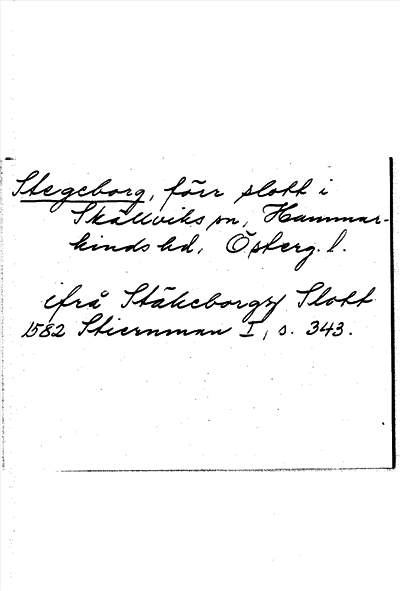 Stegeborg, förr slott i
Skällviks sn, Hammar-
kinds hd, Österg. l.
ifrå Stäkeborgz Slott
1582 Stiernman I, s. 343.